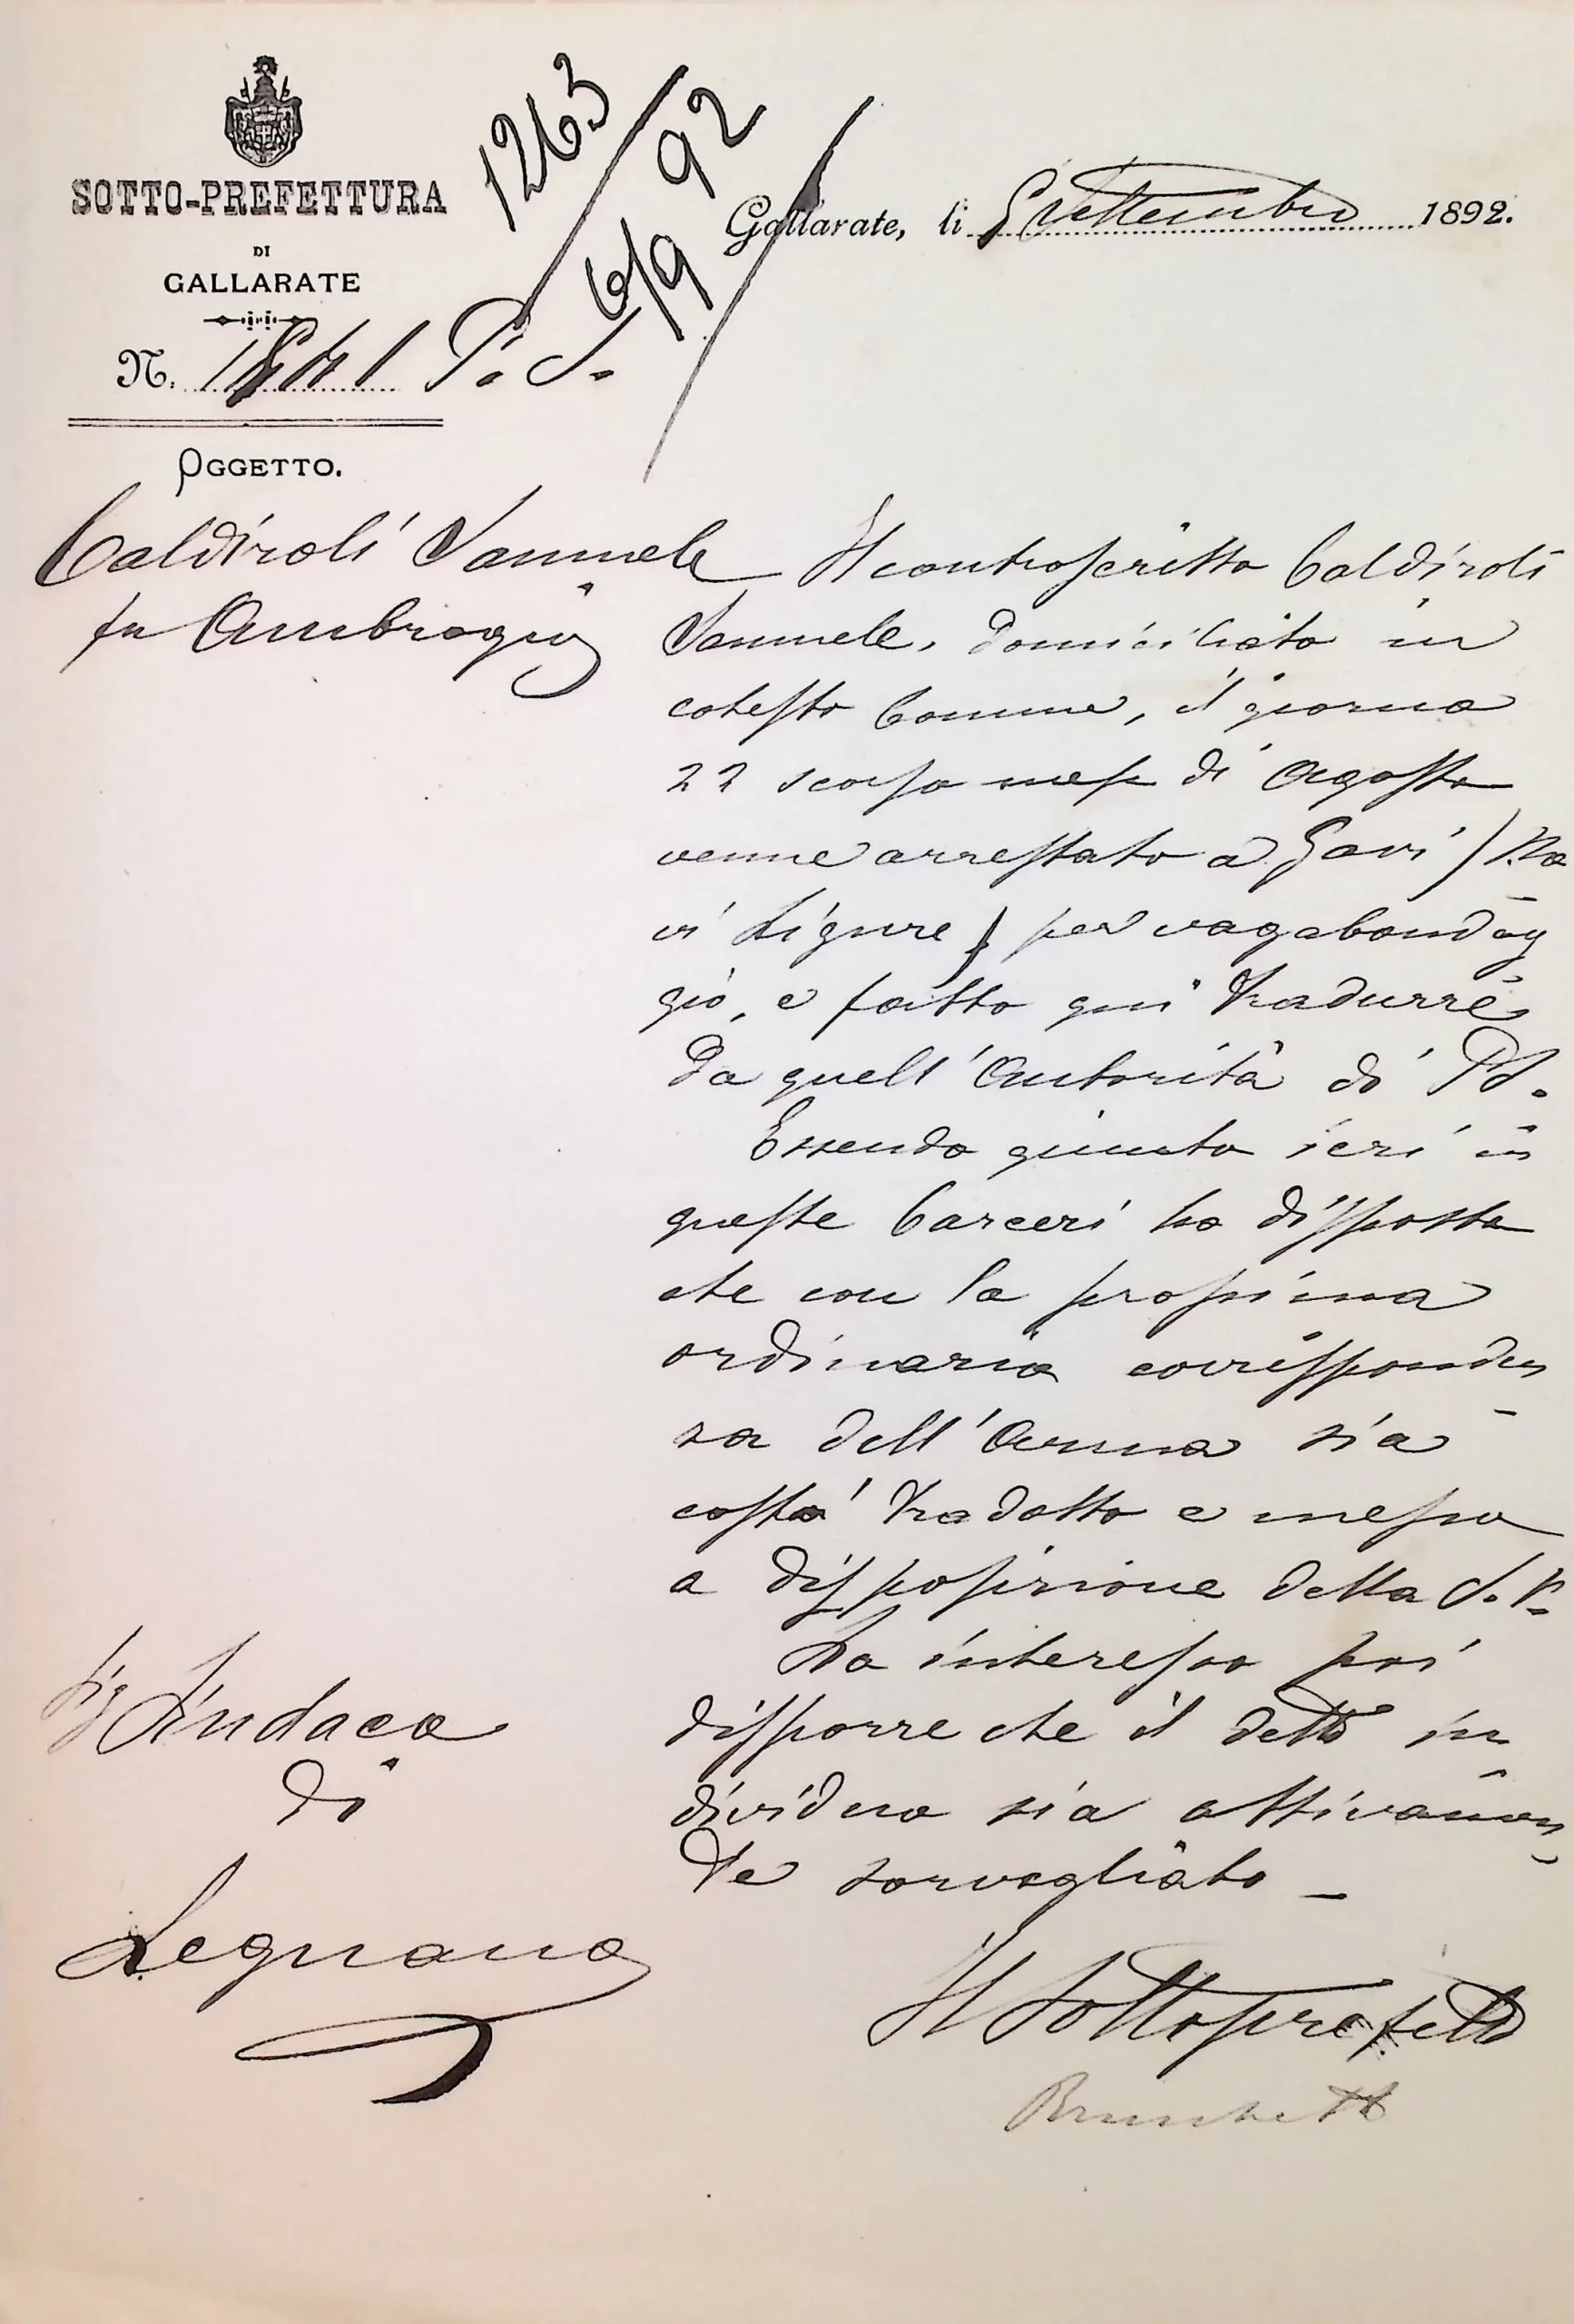 SOTTO-PREFETTURA
DI
GALLARATE
1263
6/9 92
Gallarate, li 5 Settembre 1892.
N. 1841 P. S.
OGGETTO.
Caldiroli Samuele
fu Ambrogio
Il controscritto Caldiroli
Samuele, domiciliato in
cotesto Comune, il giorno
22 scorso mese di Agosto
venne arrestato a Gavi (No
vi Ligure) per vagabondag
gio, e fatto qui tradurre
da quell'Autorità di PS.
Essendo giunto ieri in
queste Carceri ho disposto
che con la prossima
ordinaria corrisponden
za dell'Arma sia
costà tradotto e messo
a disposizione della S. V.
La interesso poi
disporre che il detto in
dividuo sia attivamen
te sorvegliato -
Il Sottoprefetto
Sig Sindaco
di
Legnano